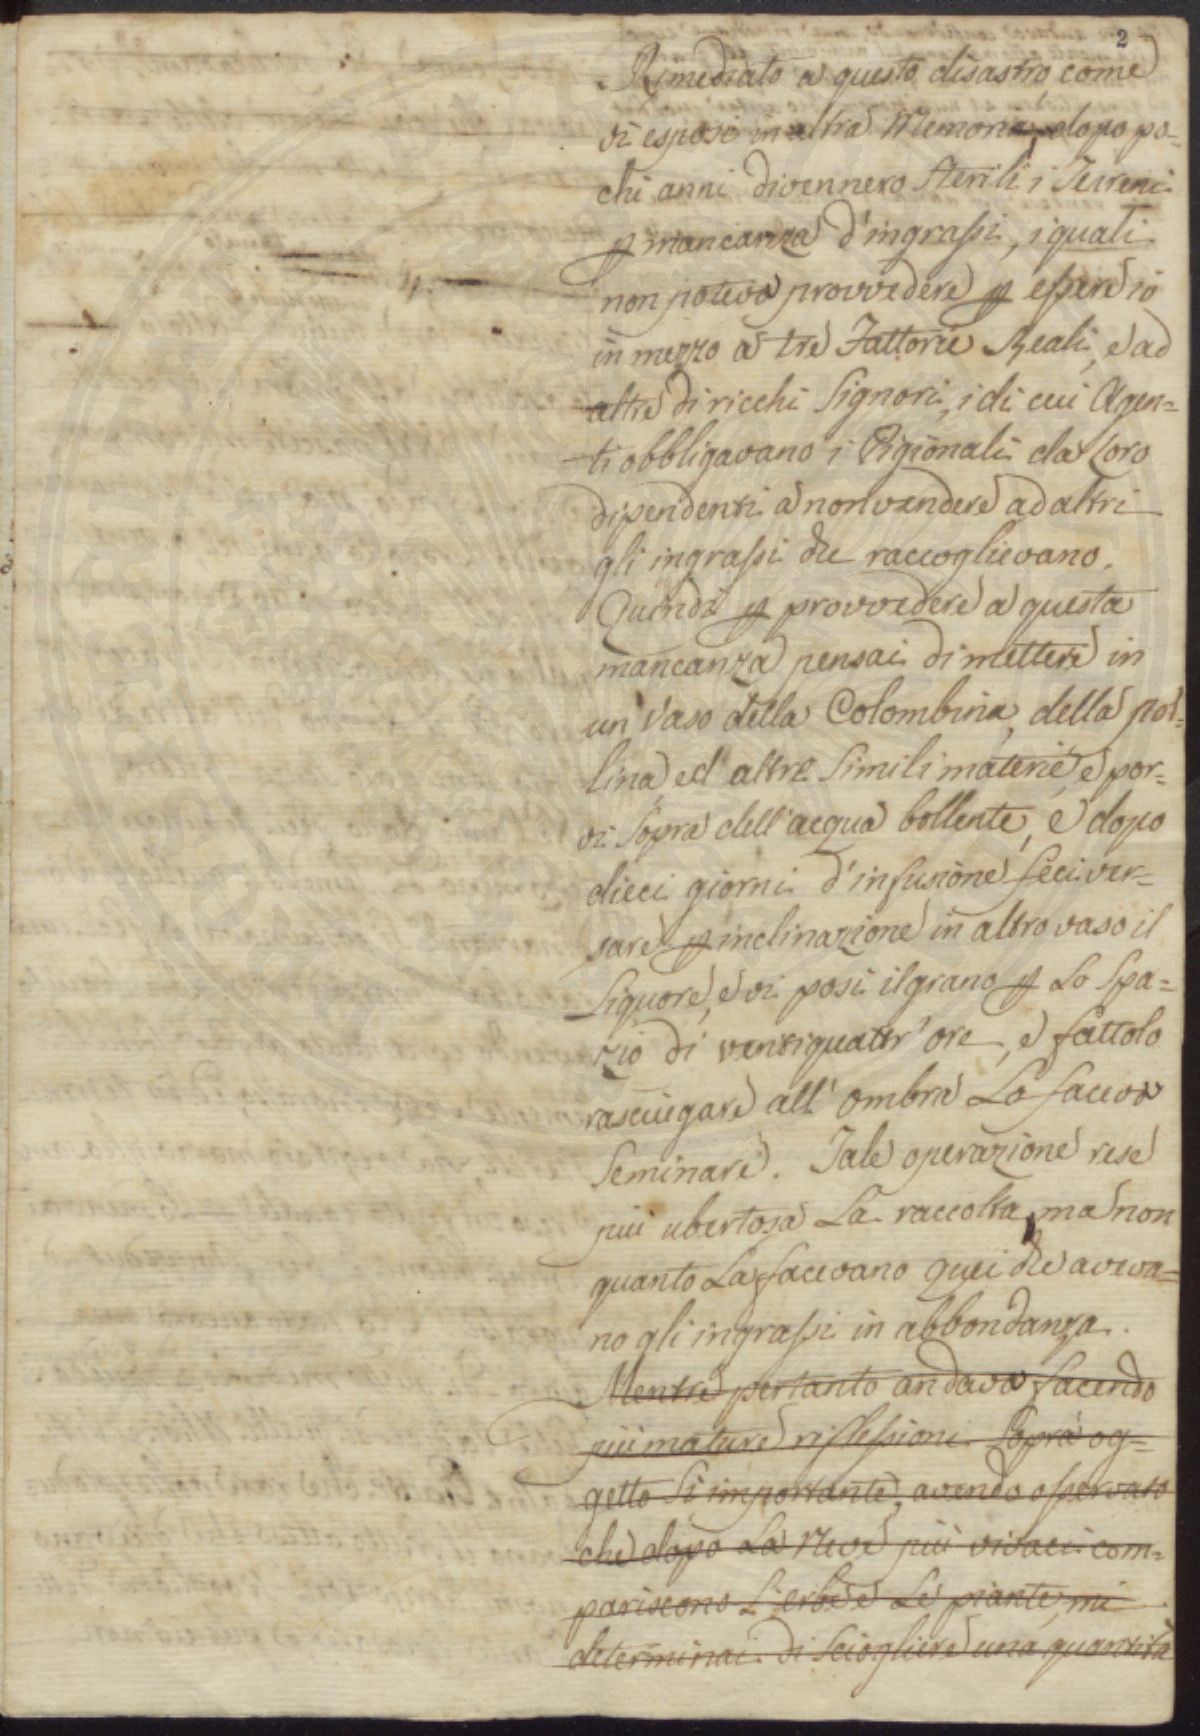 2
Rimediato a questo disastro, come
vi esposi in altra Memoria, dopo po=
chi anni divennero sterili i Terreni
p mancanza d'ingrassi, i quali
non poteva provvedere p essere io
in mezzo a tre Fattorie Reali, e ad
altre di ricchi Signori, i di cui Agen=
ti obbligavano i Pigionali da loro
dipendenti a non vendere ad altri
gli ingrassi che raccoglievano.
Quindi p provvedere a questa
mancanza pensai di mettere in
un vaso della Colombina, della pol=
lina ed altre simili materie, e por=
vi sopra dell'acqua bollente, e dopo
dieci giorni d'infusione feci ver=
sare p inclinazione in altro vaso il
liquore, e vi posi il grano p lo spa=
zio di ventiquattr'ore, e fattolo
rasciugare all'ombra lo faceva
seminare. Tale operazione rese
più ubertosa la raccolta, ma non
quanto la facevano quei che aveva=
no gli ingrassi in abbondanza.
Mentre pertanto andava facendo
più mature riflessioni sopra og=
getto sì importante, avendo osservato
che dopo la neve più vivaci com=
pariscono l'erbe e le piante, mi
determinai di sciogliere una quantità